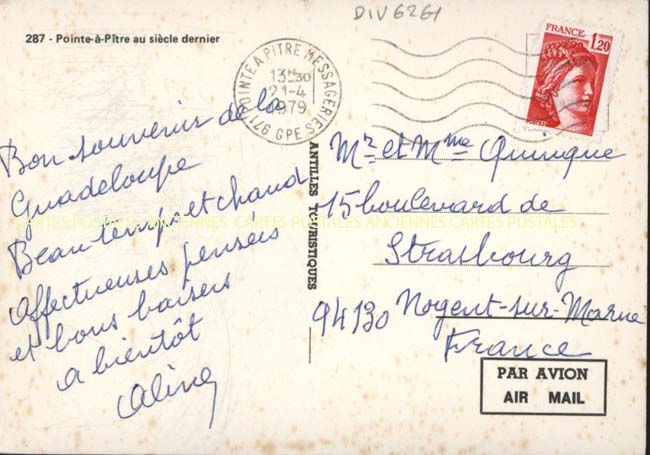 DIV6261
287 - Pointe-à-Pître au siècle dernier
FRANCE 1,20
POINTE A PITRE MESSAGERIES
13H30
21-4
1979
971 GPE
Bon souvenir de la
Guadeloupe
Beau temps et chaud
Affectueuses pensées
et bons baisers
a bientôt
Aline
ANTILLES TOURISTIQUES
Mr et Mme Quinque
15 boulevard de
Strasbourg
94130 Nogent-sur-Marne
France
PAR AVION
AIR MAIL
CARTES POSTALES ANCIENNES CARTES POSTALES ANCIENNES CARTES POSTALES